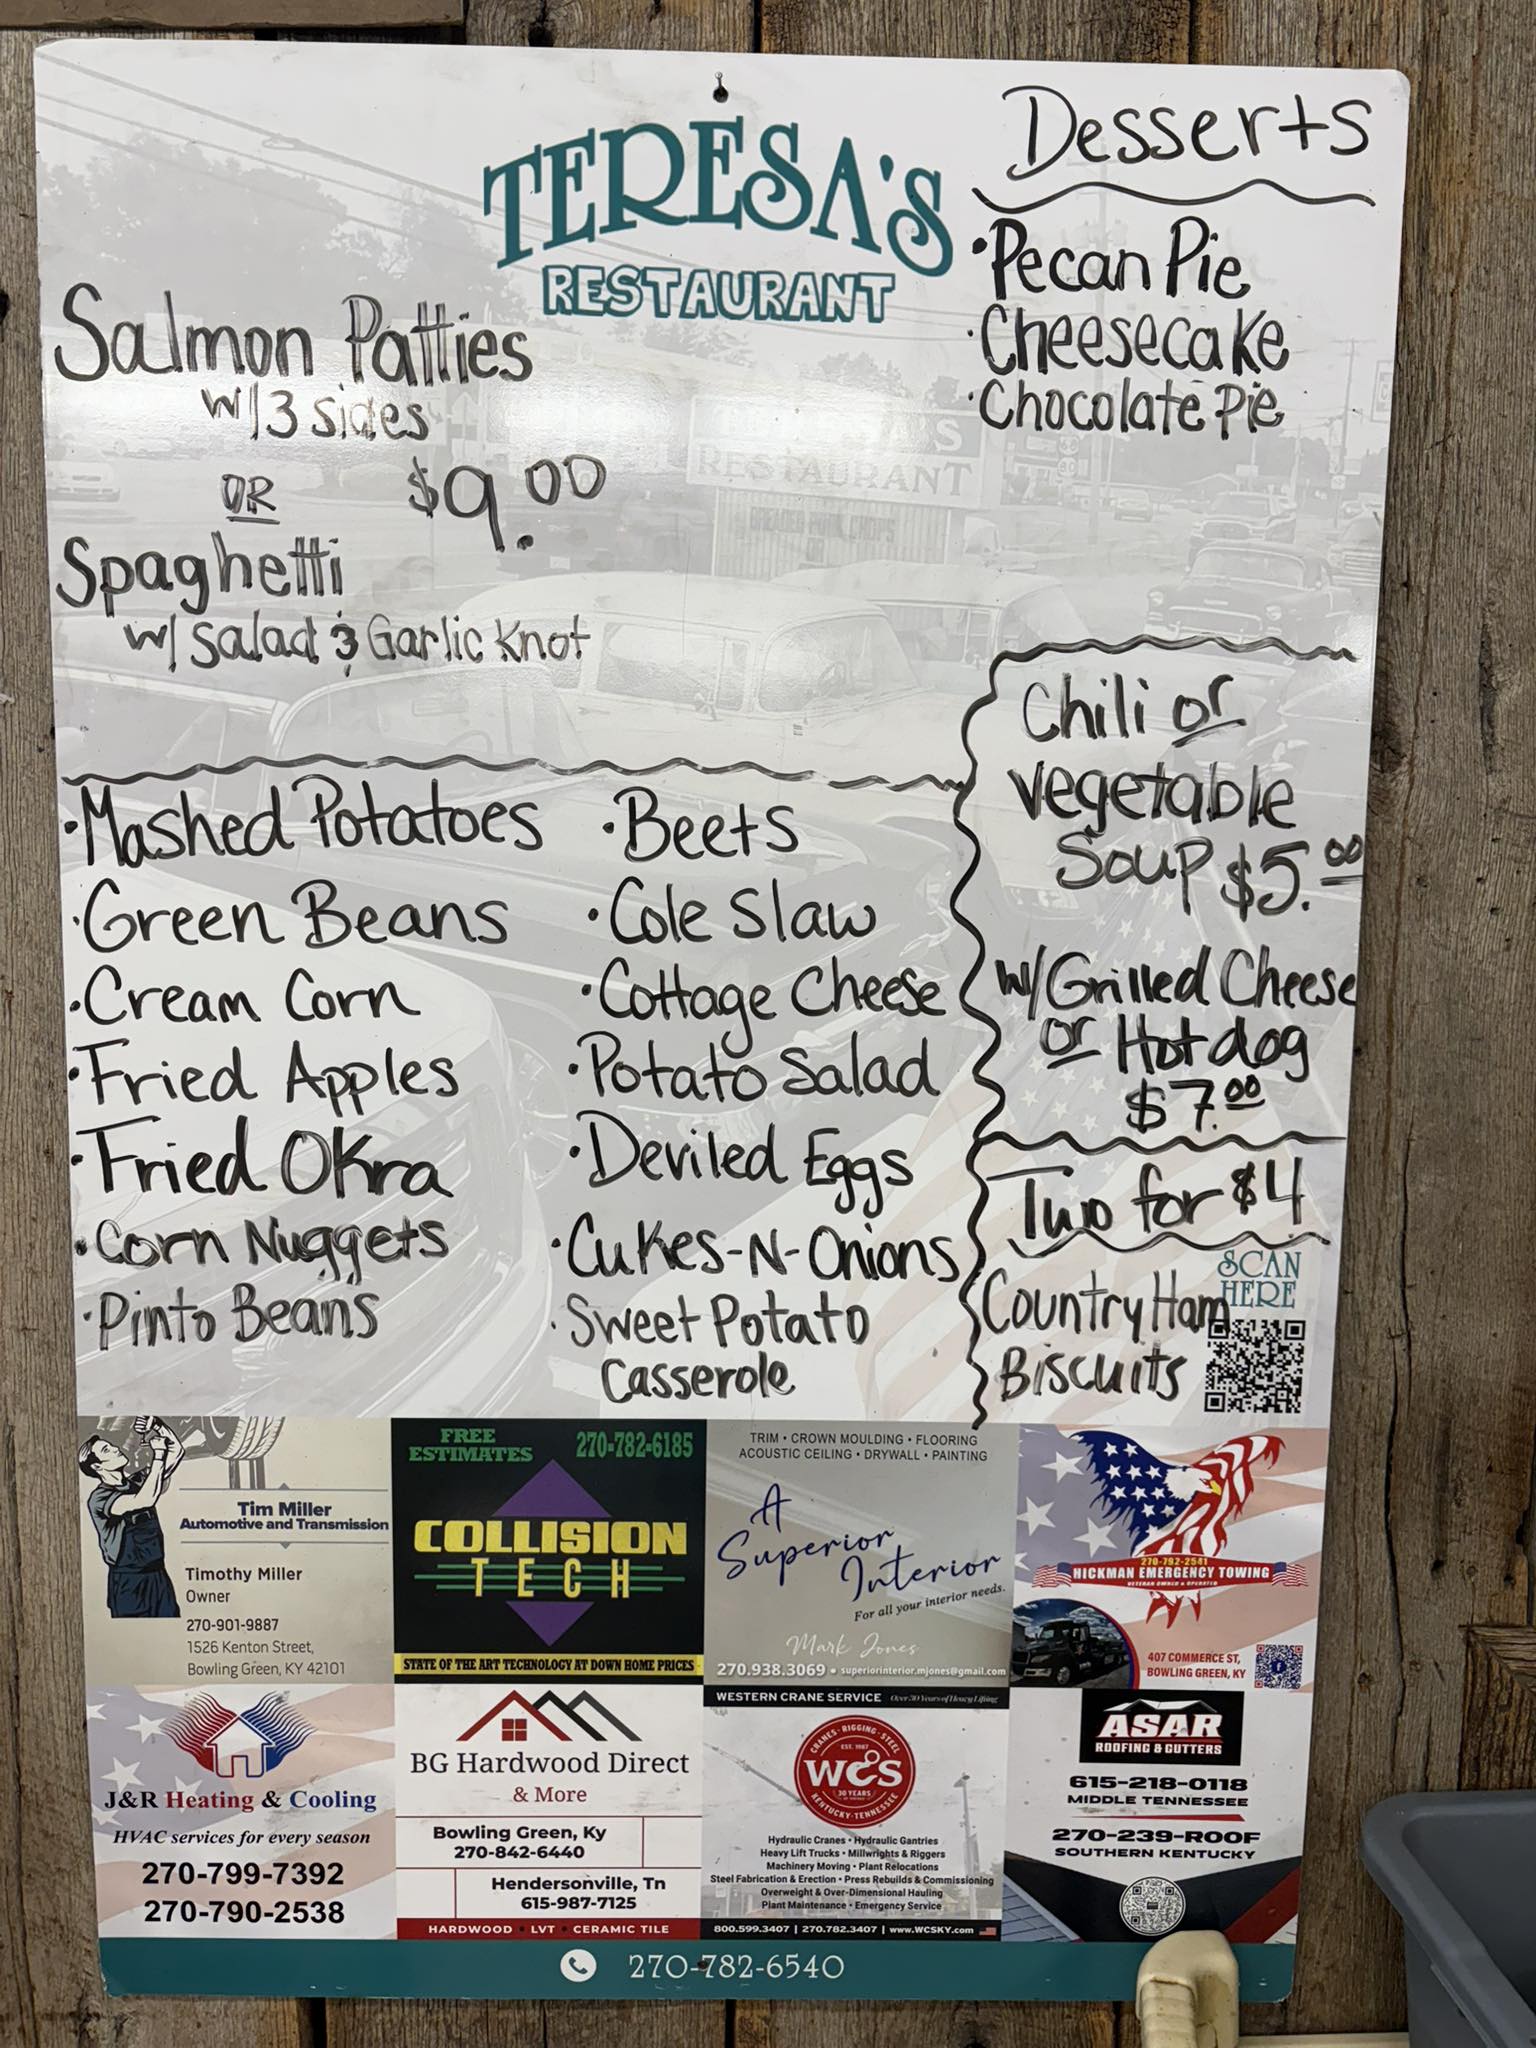 TERESA'S
RESTAURANT
Salmon Patties
w/ 3 sides
OR $9.00
Spaghetti
w/ Salad & Garlic Knot
Desserts
• Pecan Pie
• Cheesecake
• Chocolate Pie
RESTAURANT
• Mashed Potatoes
• Green Beans
• Cream Corn
• Fried Apples
• Fried Okra
• Corn Nuggets
• Pinto Beans
• Beets
• Cole Slaw
• Cottage Cheese
• Potato Salad
• Deviled Eggs
• Cukes-N-Onions
• Sweet Potato
Casserole
Chili or
vegetable
Soup $5.00
w/ Grilled Cheese
or Hotdog
$7.00
Two for $4
Country Ham
Biscuits
SCAN
HERE
Tim Miller
Automotive and Transmission
Timothy Miller
Owner
270-901-9887
1526 Kenton Street,
Bowling Green, KY 42101
FREE
ESTIMATES
270-782-6185
COLLISION
TECH
STATE OF THE ART TECHNOLOGY AT DOWN HOME PRICES
TRIM • CROWN MOULDING • FLOORING
ACOUSTIC CEILING • DRYWALL • PAINTING
A
Superior
Interior
For all your interior needs.
Mark Jones
270.938.3069 • superiorinterior.mjones@gmail.com
270-792-2541
HICKMAN EMERGENCY TOWING
VETERAN OWNED & OPERATED
407 COMMERCE ST,
BOWLING GREEN, KY
J&R Heating & Cooling
HVAC services for every season
270-799-7392
270-790-2538
BG Hardwood Direct
& More
Bowling Green, Ky
270-842-6440
Hendersonville, Tn
615-987-7125
HARDWOOD • LVT • CERAMIC TILE
WESTERN CRANE SERVICE Over 30 Years of Heavy Lifting
CRANES · RIGGING · STEEL
EST. 1987
WCS
30 YEARS
KENTUCKY · TENNESSEE
Hydraulic Cranes • Hydraulic Gantries
Heavy Lift Trucks • Millwrights & Riggers
Machinery Moving • Plant Relocations
Steel Fabrication & Erection • Press Rebuilds & Commissioning
Overweight & Over-Dimensional Hauling
Plant Maintenance • Emergency Service
800.599.3407 | 270.782.3407 | www.WCSKY.com
ASAR
ROOFING & GUTTERS
615-218-0118
MIDDLE TENNESSEE
270-239-ROOF
SOUTHERN KENTUCKY
270-782-6540